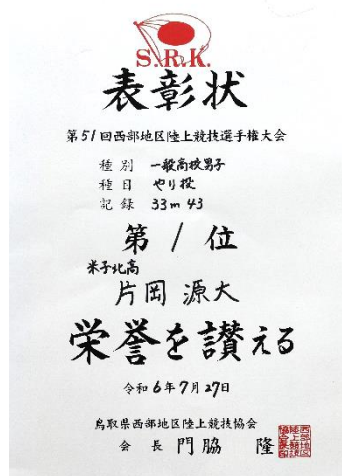 S.R.K.
表彰状
第51回西部地区陸上競技選手権大会
種別 一般高校男子
種目 やり投
記録 33m43
第1位
米子北高
片岡 源大
栄誉を讃える
令和6年7月27日
鳥取県西部地区陸上競技協会
会長 門脇 隆
西部地区
陸上競技
協会長印